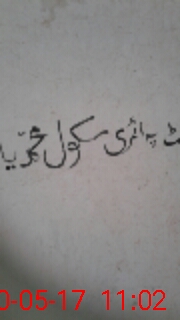 پرائمری سکول
0-05-17 11:02